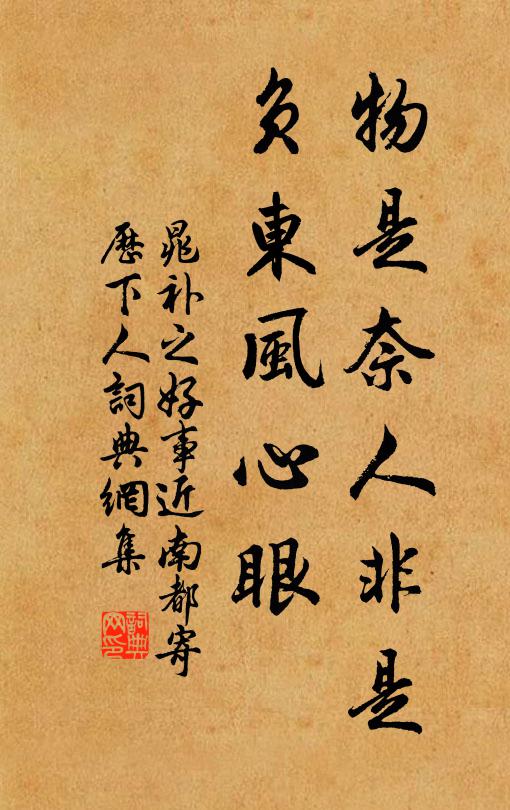 物是奈人非是
負東風心眼
晁補之好事近南都寄
歷下人詞典網集
詞典網印